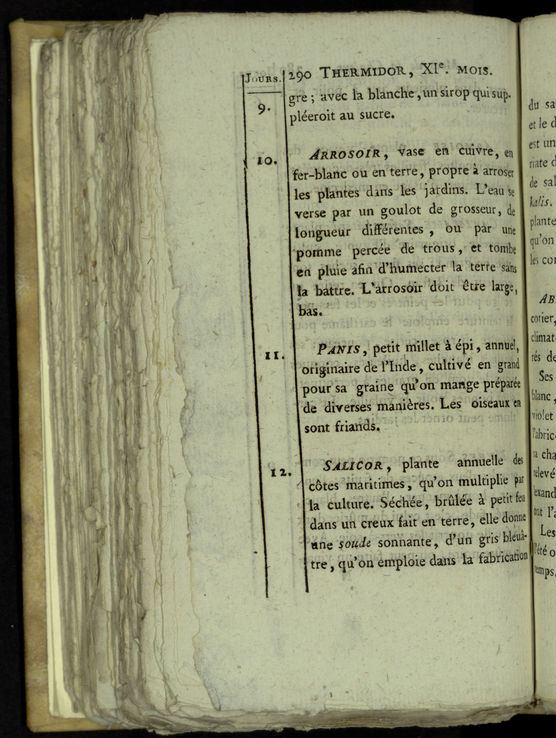 Jours. 290 THERMIDOR, XIe. MOIS.
9. gre ; avec la blanche, un sirop qui sup-
pléeroit au sucre.
10. ARROSOIR, vase en cuivre, en
fer-blanc ou en terre, propre à arroser
les plantes dans les jardins. L'eau se
verse par un goulot de grosseur, de
longueur différentes, ou par une
pomme percée de trous, et tombe
en pluie afin d'humecter la terre sans
la battre. L'arrosoir doit être large,
bas.
11. PANIS, petit millet à épi, annuel,
originaire de l'Inde, cultivé en grand
pour sa graine qu'on mange préparée
de diverses manières. Les oiseaux en
sont friands.
12. SALICOR, plante annuelle des
côtes maritimes, qu'on multiplie par
la culture. Séchée, brûlée à petit feu
dans un creux fait en terre, elle donne
une soude sonnante, d'un gris bleuâ-
tre, qu'on emploie dans la fabrication
du sa
et le d
est un
riate d
de sal
kalis.
plante
qu'on
les co
AB
cotier,
climat
rés de
Ses
blanc,
violet
fabric
sa cha
relevé
exand
ont l'a
Les
l'été o
temps.